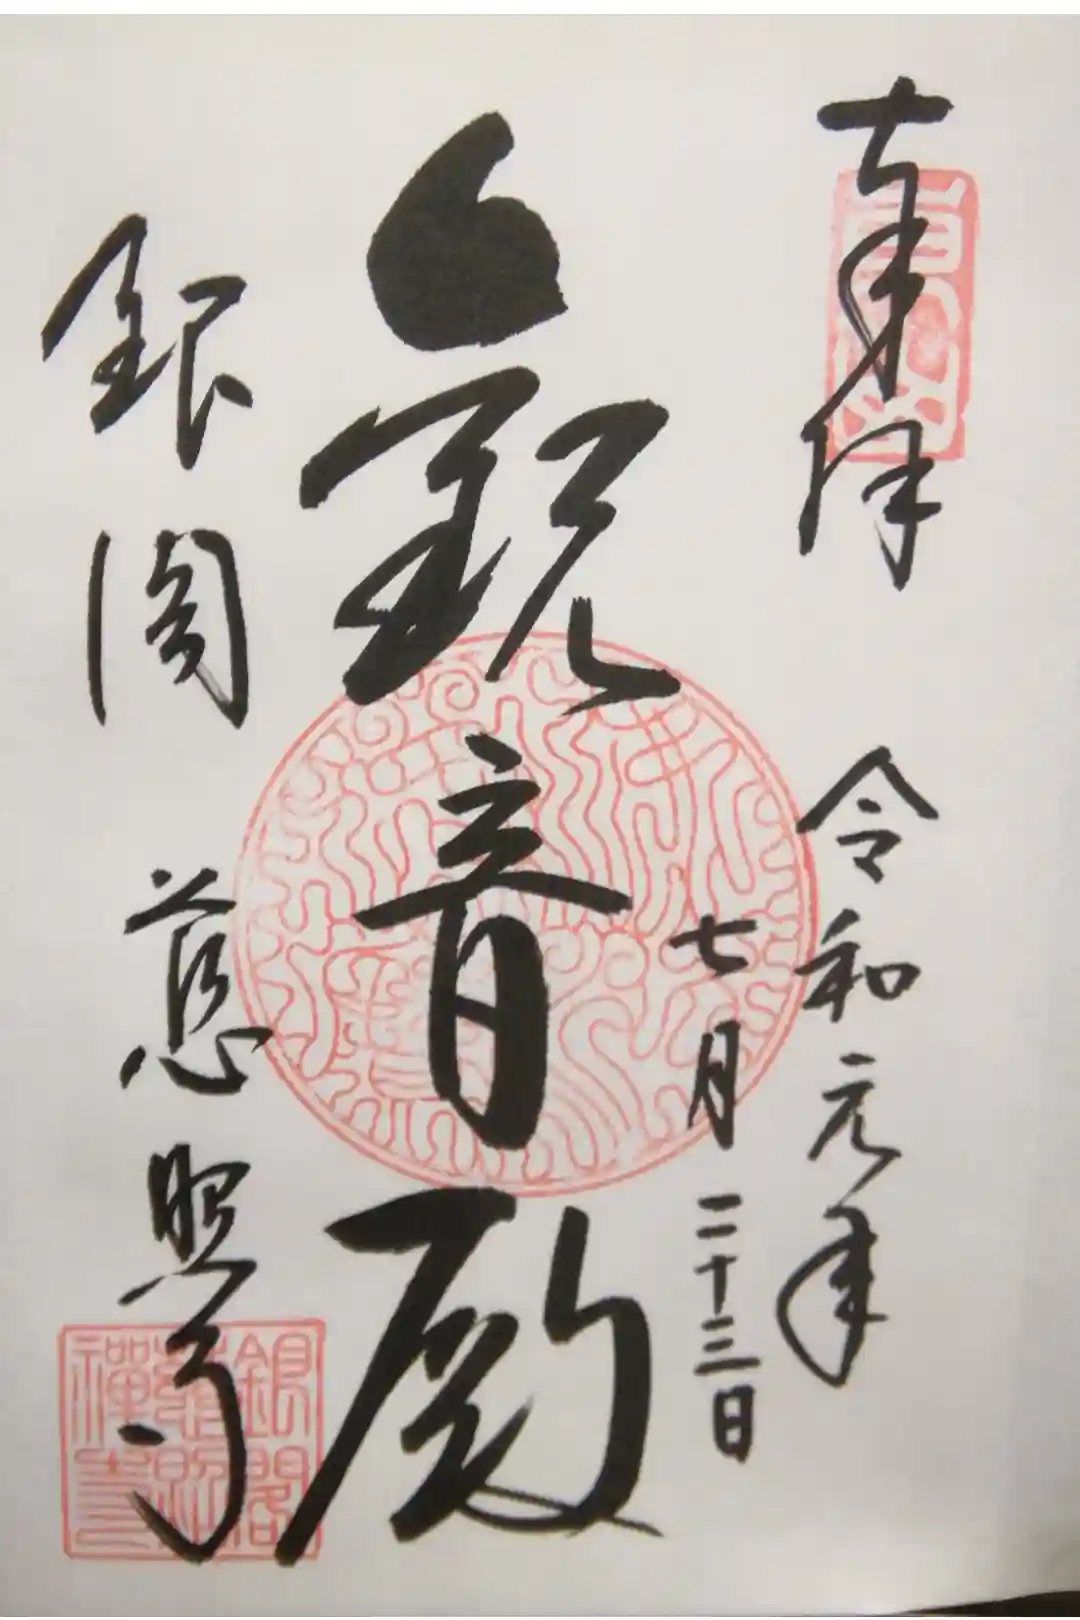 奉拝
令和元年
七月二十三日
観音殿
銀閣 慈照寺
銀閣
慈照
禪寺